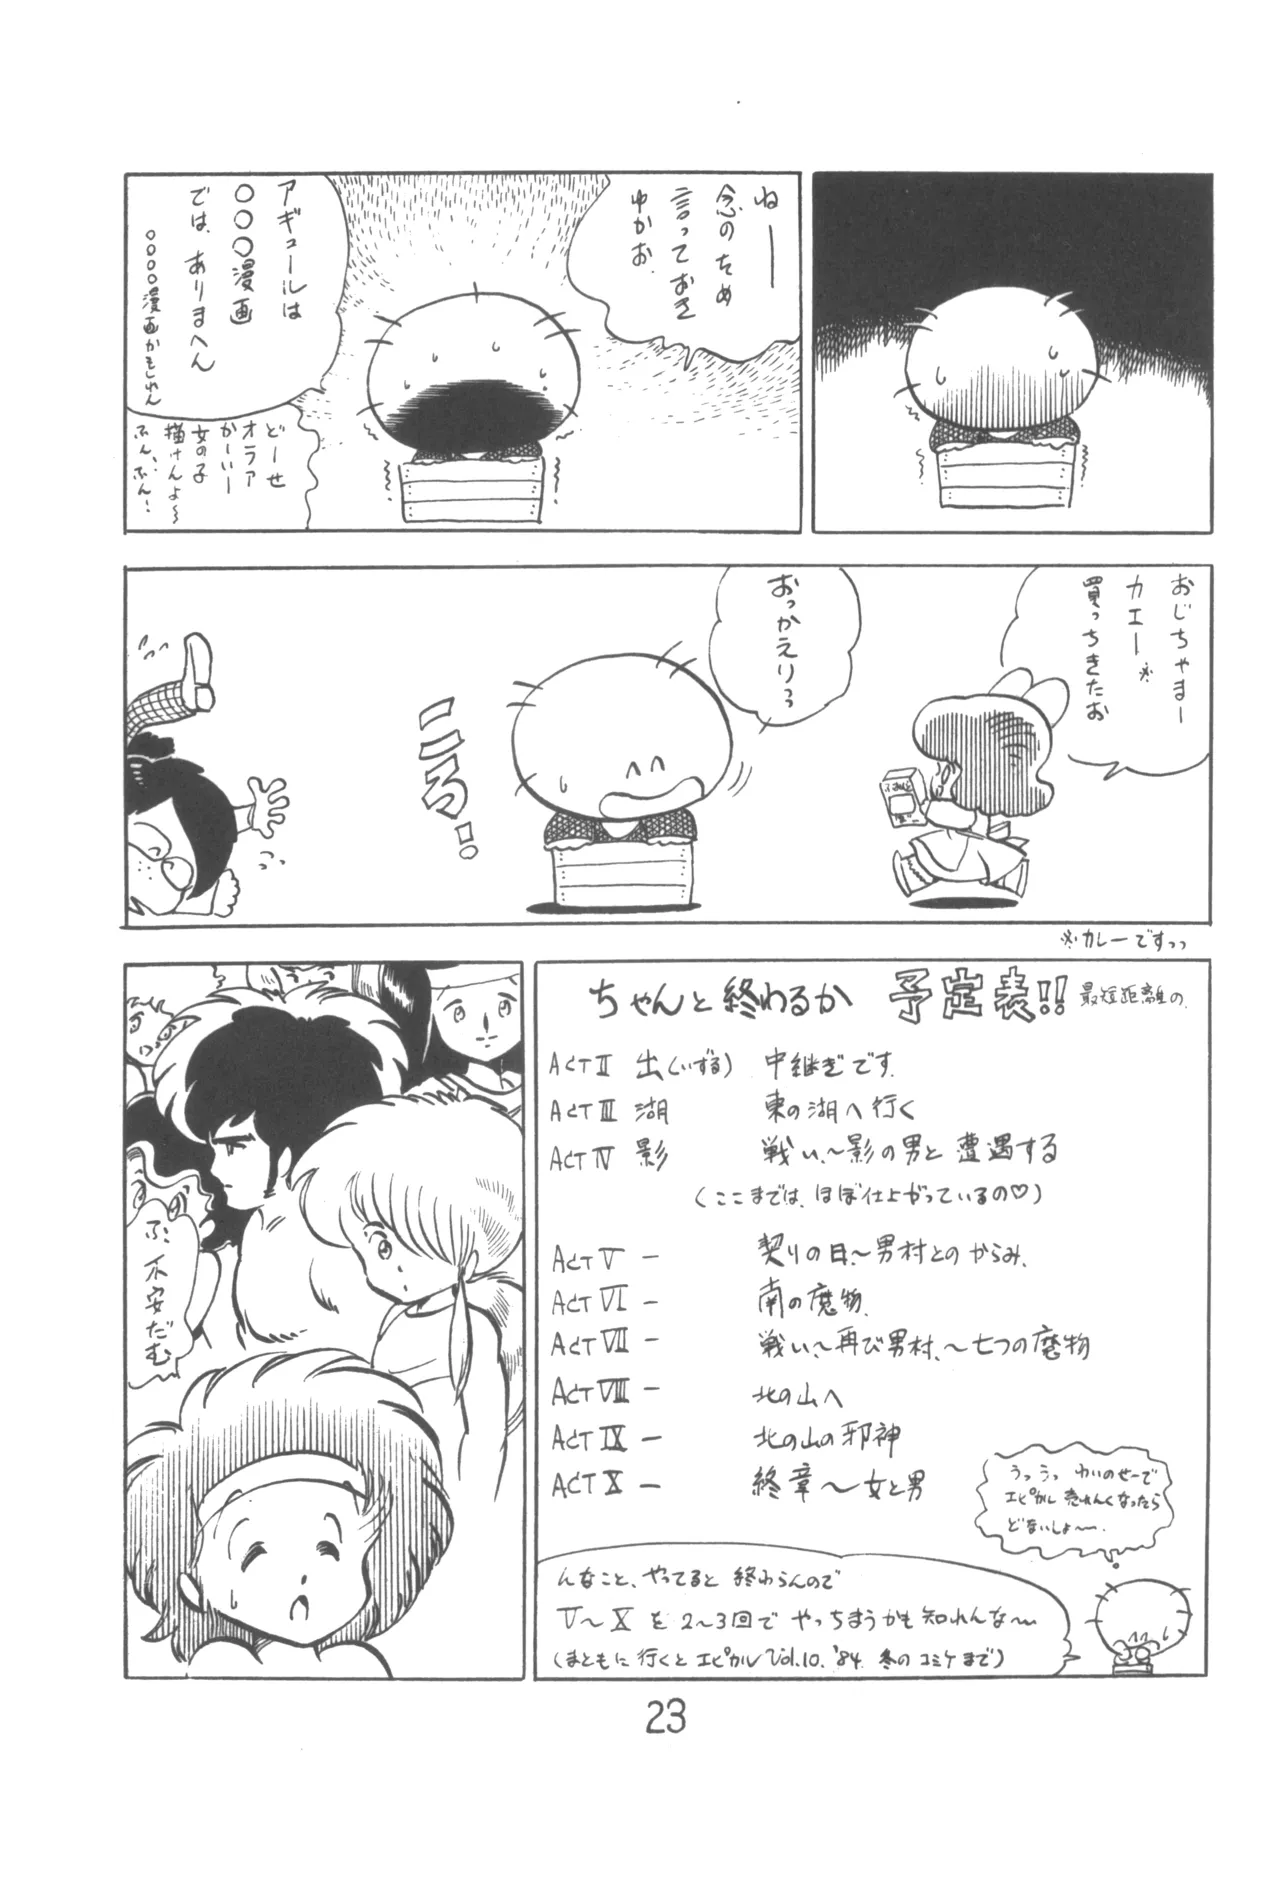 ねーー
念のため
言っておき
ゆかお.
アギュールは
○○○漫画
では、ありまへん
○○○○漫画かもしれん
どーせ
オラァ
かーいー
女の子
描けんよ〜
ふん、ふん!
おじちゃまー
カエー※
買っちきたお
おっかえりっっ
ころっ!
※カレーですっっ
ぶ、不安だむ
ちゃんと終わるか 予定表!! 最短距離の.
ACT II 出(いずる) 中継ぎです.
ACT III 湖 東の湖へ行く
ACT IV 影 戦い、〜影の男と遭遇する
(ここまでは、ほぼ仕上がっているの♡)
ACT V ー 契りの日、〜男村とのからみ.
ACT VI ー 南の魔物.
ACT VII ー 戦い、〜再び男村、〜七つの魔物
ACT VIII ー 北の山へ
ACT IX ー 北の山の邪神
ACT X ー 終章〜女と男
うっうっ わいのせーで
エピカル売れんくなったら
どないしょ〜.
んなこと、やってると終わらんので
V〜X を 2〜3回で やっちまうかも知れんな〜
(まともに行くと エピカル Vol.10. '84. 冬のコミケまで)
23